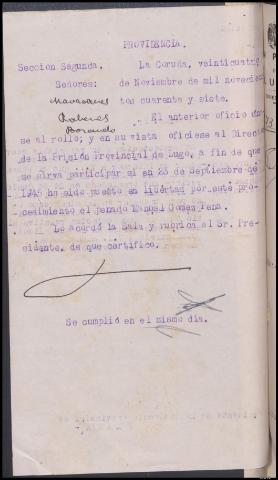 PROVIDENCIA.
Sección Segunda. La Coruña, veinticuatro
Señores: de Noviembre de mil novecien
tos cuarenta y siete.
El anterior oficio úna
se al rollo; y en su vista ofíciese al Direct
de la Prisión Provincial de Lugo, a fin de que
se sirva participar si en 23 de Septiembre de
ha sido puesto en libertad por este pro-
cedimiento el penado Manuel Gómez Pena.
Lo acordó la Sala y rubrica el Sr. Pre-
sidente, de que certifico.
Se cumplió en el mismo día.